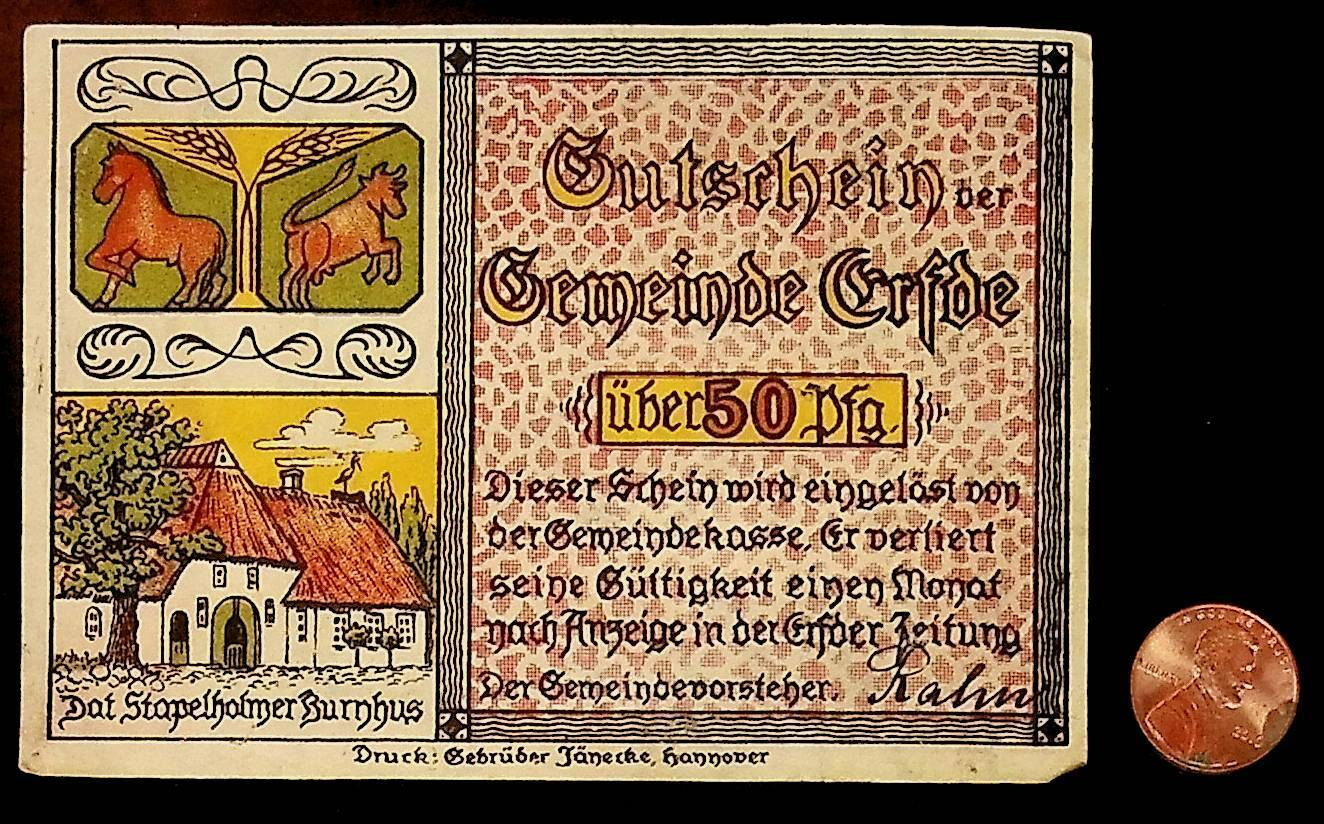 Gutschein der
Gemeinde Erfde
über 50 Pfg.
Dieser Schein wird eingelöst von
der Gemeindekasse. Er verliert
seine Gültigkeit einen Monat
nach Anzeige in der Erfder Zeitung
Der Gemeindevorsteher.
Dat Stapelholmer Burnhus
Druck: Gebrüder Jänecke, Hannover